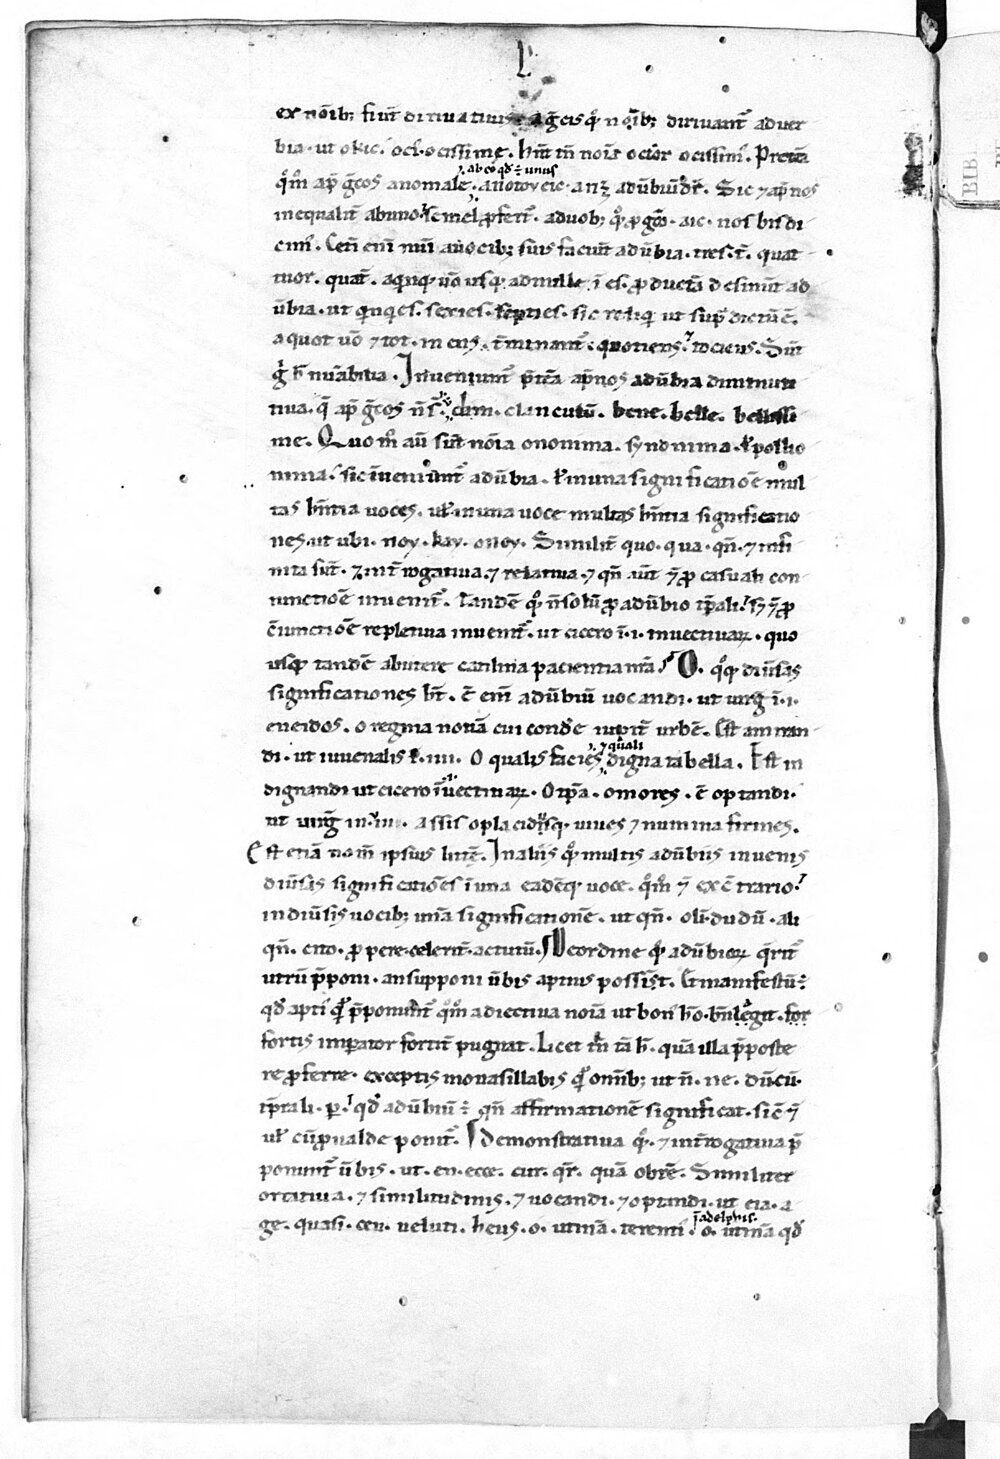 L
ex noīb; fiūt diriuatiuis. a ḡcis qͥ noīb; diriuant̄ aduer
bia. ut okic. oci. ocissime. hīt tn̄ nois ocior ocissimꝰ. Pretea
q̊m ap̄ ḡcos anomale
, ab eo qd̄ ÷ unus
adūbiū dr̄. Sic ⁊ ap̄ nos
inequalit̄ ab uno semel ꝓfert̄. a duob; ꝓ ḡco. aic. nos bis di
cim̄. Cet̄i eni nūi a uocib; suis faciūt adūbia. tres. t̄. quat
tuor. quat̄. a qinq; uō usq; ad mille. i es. ꝓductā desinūt ad
ūbia. ut qinqies. sexies. septies. sic reliqi ut sup̄ dictū ē.
a quot uō ⁊ tot. in ens. t̄minant̄. quotiens. tociens. Sūt
g̊ h̄ nūabilia. Inueniunt̄ p̄tea ap̄ nos adūbia diminuti
tiua. q̄ ap̄ ḡcos n̄ s̄. clam. clanculū. bene. belle. bellissi
me. Quom̊ aū sūt noīa onomina. synonima. ł pollio
nima. sic īueniunt̄ adūbia. ł in una significatiōe mul
tas hn̄tia uoces. uł in una uoce multas hn̄tia significatio
nes. ut ubi. noy. kay. onoy. Similit̄ quo. qua. qn̄. ⁊ infi
nita sūt. ⁊ int̄rogatiua. ⁊ relatiua. ⁊ qn̄ aūt ꝓ casuali con
iunctiōe inuenit̄. Tandē q̊ n̄ solū ꝓ adūbio tp̄ali. s; ⁊ ꝓ
c̄iunctiōe repletiua inuenit̄. ut cicero ī. i. inuectiuaꝝ. quo
usq; tandē abutere catilina pacientia nr̄a. O. q̊q; diūsas
significationes h̄t. ē eni adūbiū uocandi. ut uirḡ ī. i.
eneidos. o regina nouā cui condere iupit̄ urbē. Est ammiran
di. ut iuuenalis ł. iiii. O qualis facies
, ⁊ q̄li
digna tabella. Est in
dignandi ut cicero ī inuectiuaꝝ. O tp̄a. o mores. ē optandi.
ut uirḡ in. iii. assis o placidusq; iuues ⁊ numina firmes.
Est etiā nom̄ ipsius litt̄e. In aliis q̊ multis adūbiis inuenis
diūsas significatiōes ī una eadēq; uoce. q̊m ⁊ ex c̄trario
in diūsis uocib; unā significationē. ut qn̄. oli. dudū. ali
qn̄. cito. ꝓpere. celerit̄. actutū. De ordine q̊ adūbioꝝ q̄rit̄
utrū p̄poni. an supponi ūbis aptius possint. Et manifestū ÷
qd̄ apti p̄ponunt̄ q̊m adiectiua noīa ut bonꝰ hō. bn̄ legit. for
fortis imperator fortit̄ pugnat. Licet tn̄ tā h̄. quā illa p̄poste
re ꝓferre. exceptis monasillabis q̊ omīb; ut n̄. ne. dū. cū.
tp̄rali. p̄. qd̄ adūbiū ÷ qn̄ affirmationē significat. sic̄ ⁊
uł cū ꝓ ualde ponit̄. Demonstratiua q̊. ⁊ int̄rogatiua p̄
ponunt̄ ūbis. ut. en. ecce. cur. q̄r. quā obrē. Similiter
ortatiua. ⁊ similitudinis. ⁊ uocandi. ⁊ optandi. ut eia. a
ge. quasi. ceu. ueluti. heus. o. utinā. terenti
ī adelphis.
o. utinā qd̄